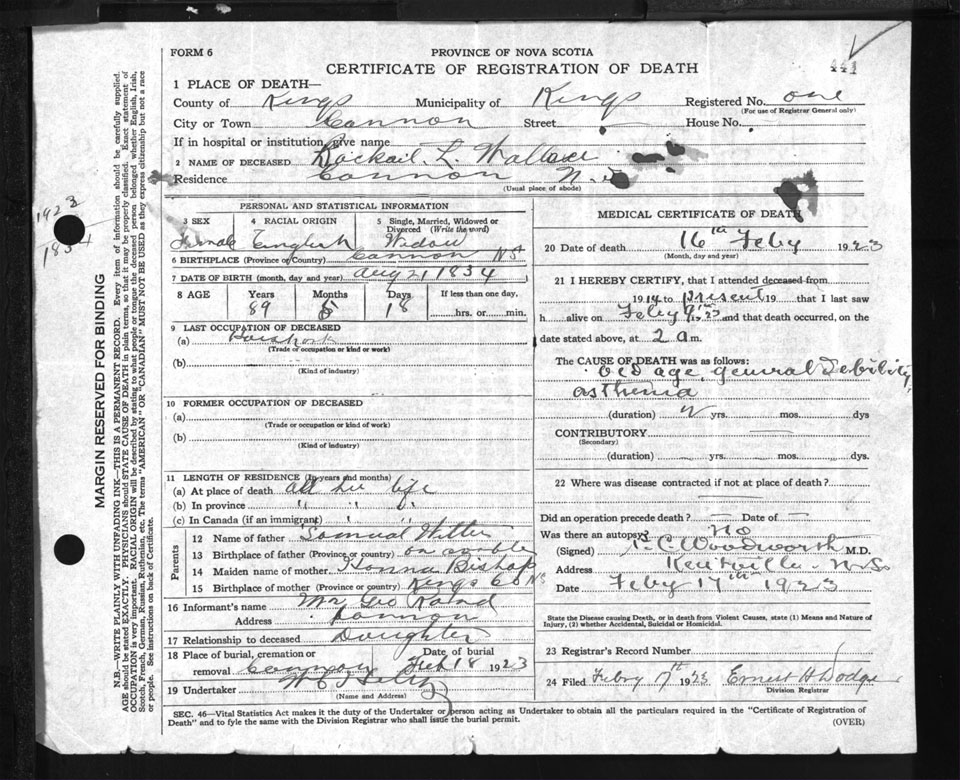 FORM 6
PROVINCE OF NOVA SCOTIA
CERTIFICATE OF REGISTRATION OF DEATH
441
1 PLACE OF DEATH—
County of Kings Municipality of Kings Registered No. one
(For use of Registrar General only)
City or Town Cannon Street House No.
If in hospital or institution, give name
2 NAME OF DECEASED L. Wallace
Residence Cannon N.S
(Usual place of abode)
1923
1834
MARGIN RESERVED FOR BINDING
N.B.—WRITE PLAINLY WITH UNFADING INK—THIS IS A PERMANENT RECORD. Every item of information should be carefully supplied.
AGE should be stated EXACTLY. PHYSICIANS should STATE CAUSE OF DEATH in plain terms, so that it may be properly classified. Exact statement of
OCCUPATION is very important. RACIAL ORIGIN will be described by stating to what people or tongue the deceased person belonged whether English, Irish,
Scotch, French, German, Russian, Ruthenian, etc. The terms "AMERICAN" OR "CANADIAN" MUST NOT BE USED as they express citizenship but not a race
or people. See instructions on back of Certificate.
PERSONAL AND STATISTICAL INFORMATION
3 SEX
4 RACIAL ORIGIN
5 Single, Married, Widowed or
Divorced (Write the word)
Female English Widow
6 BIRTHPLACE (Province or Country) Cannon NS
7 DATE OF BIRTH (month, day and year) Aug 21 1834
8 AGE Years Months Days If less than one day,
89 18 hrs. or min.
9 LAST OCCUPATION OF DECEASED
(a)
(Trade or occupation or kind or work)
(b)
(Kind of industry)
10 FORMER OCCUPATION OF DECEASED
(a)
(Trade or occupation or kind of work)
(b)
(Kind of industry)
11 LENGTH OF RESIDENCE (In years and months)
(a) At place of death all her life
(b) In province " "
(c) In Canada (if an immigrant)
Parents
12 Name of father Samuel
13 Birthplace of father (Province or country)
14 Maiden name of mother Bishop
15 Birthplace of mother (Province or country) Kings Co NS
16 Informant's name Mr Geo
Address Cannon
17 Relationship to deceased Daughter
18 Place of burial, cremation or
removal Date of burial
Feb 18 1923
19 Undertaker
(Name and Address)
MEDICAL CERTIFICATE OF DEATH
20 Date of death 16th Feby 1923
(Month, day and year)
21 I HEREBY CERTIFY, that I attended deceased from
1914 to present 19 that I last saw
h alive on Feby 9th 1923 and that death occurred, on the
date stated above, at 2 a m.
The CAUSE OF DEATH was as follows:
old age, general debility,
asthenia
(duration) yrs. mos. dys
CONTRIBUTORY
(Secondary)
(duration) yrs. mos. dys.
22 Where was disease contracted if not at place of death?
Did an operation precede death? — Date of —
Was there an autopsy? No
(Signed) Woodworth M.D.
Address Kentville N.S.
Date Feby 17th 1923
State the Disease causing Death, or in death from Violent Causes, state (1) Means and Nature of
Injury, (2) whether Accidental, Suicidal or Homicidal.
23 Registrar's Record Number
24 Filed 1923 Ernest H Dodge
Division Registrar
SEC. 46—Vital Statistics Act makes it the duty of the Undertaker or person acting as Undertaker to obtain all the particulars required in the "Certificate of Registration of
Death" and to fyle the same with the Division Registrar who shall issue the burial permit.
(OVER)